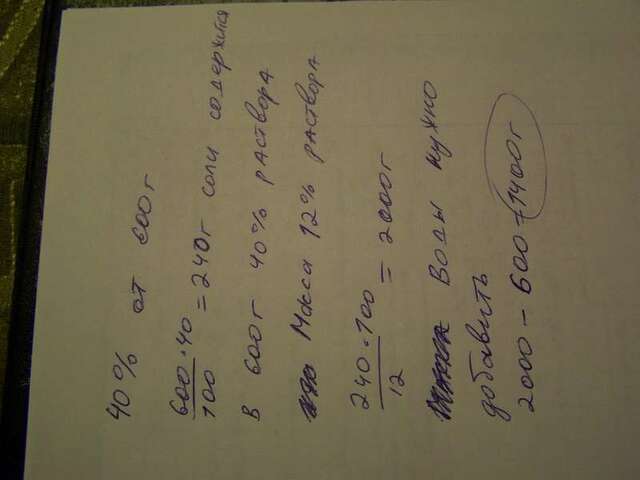 40% от 600г
600·40/100 = 240г соли содержится
в 600г 40% раствора
Масса 12% раствора
240·100/12 = 2000г
Воды нужно
добавить
2000 - 600 = 1400г